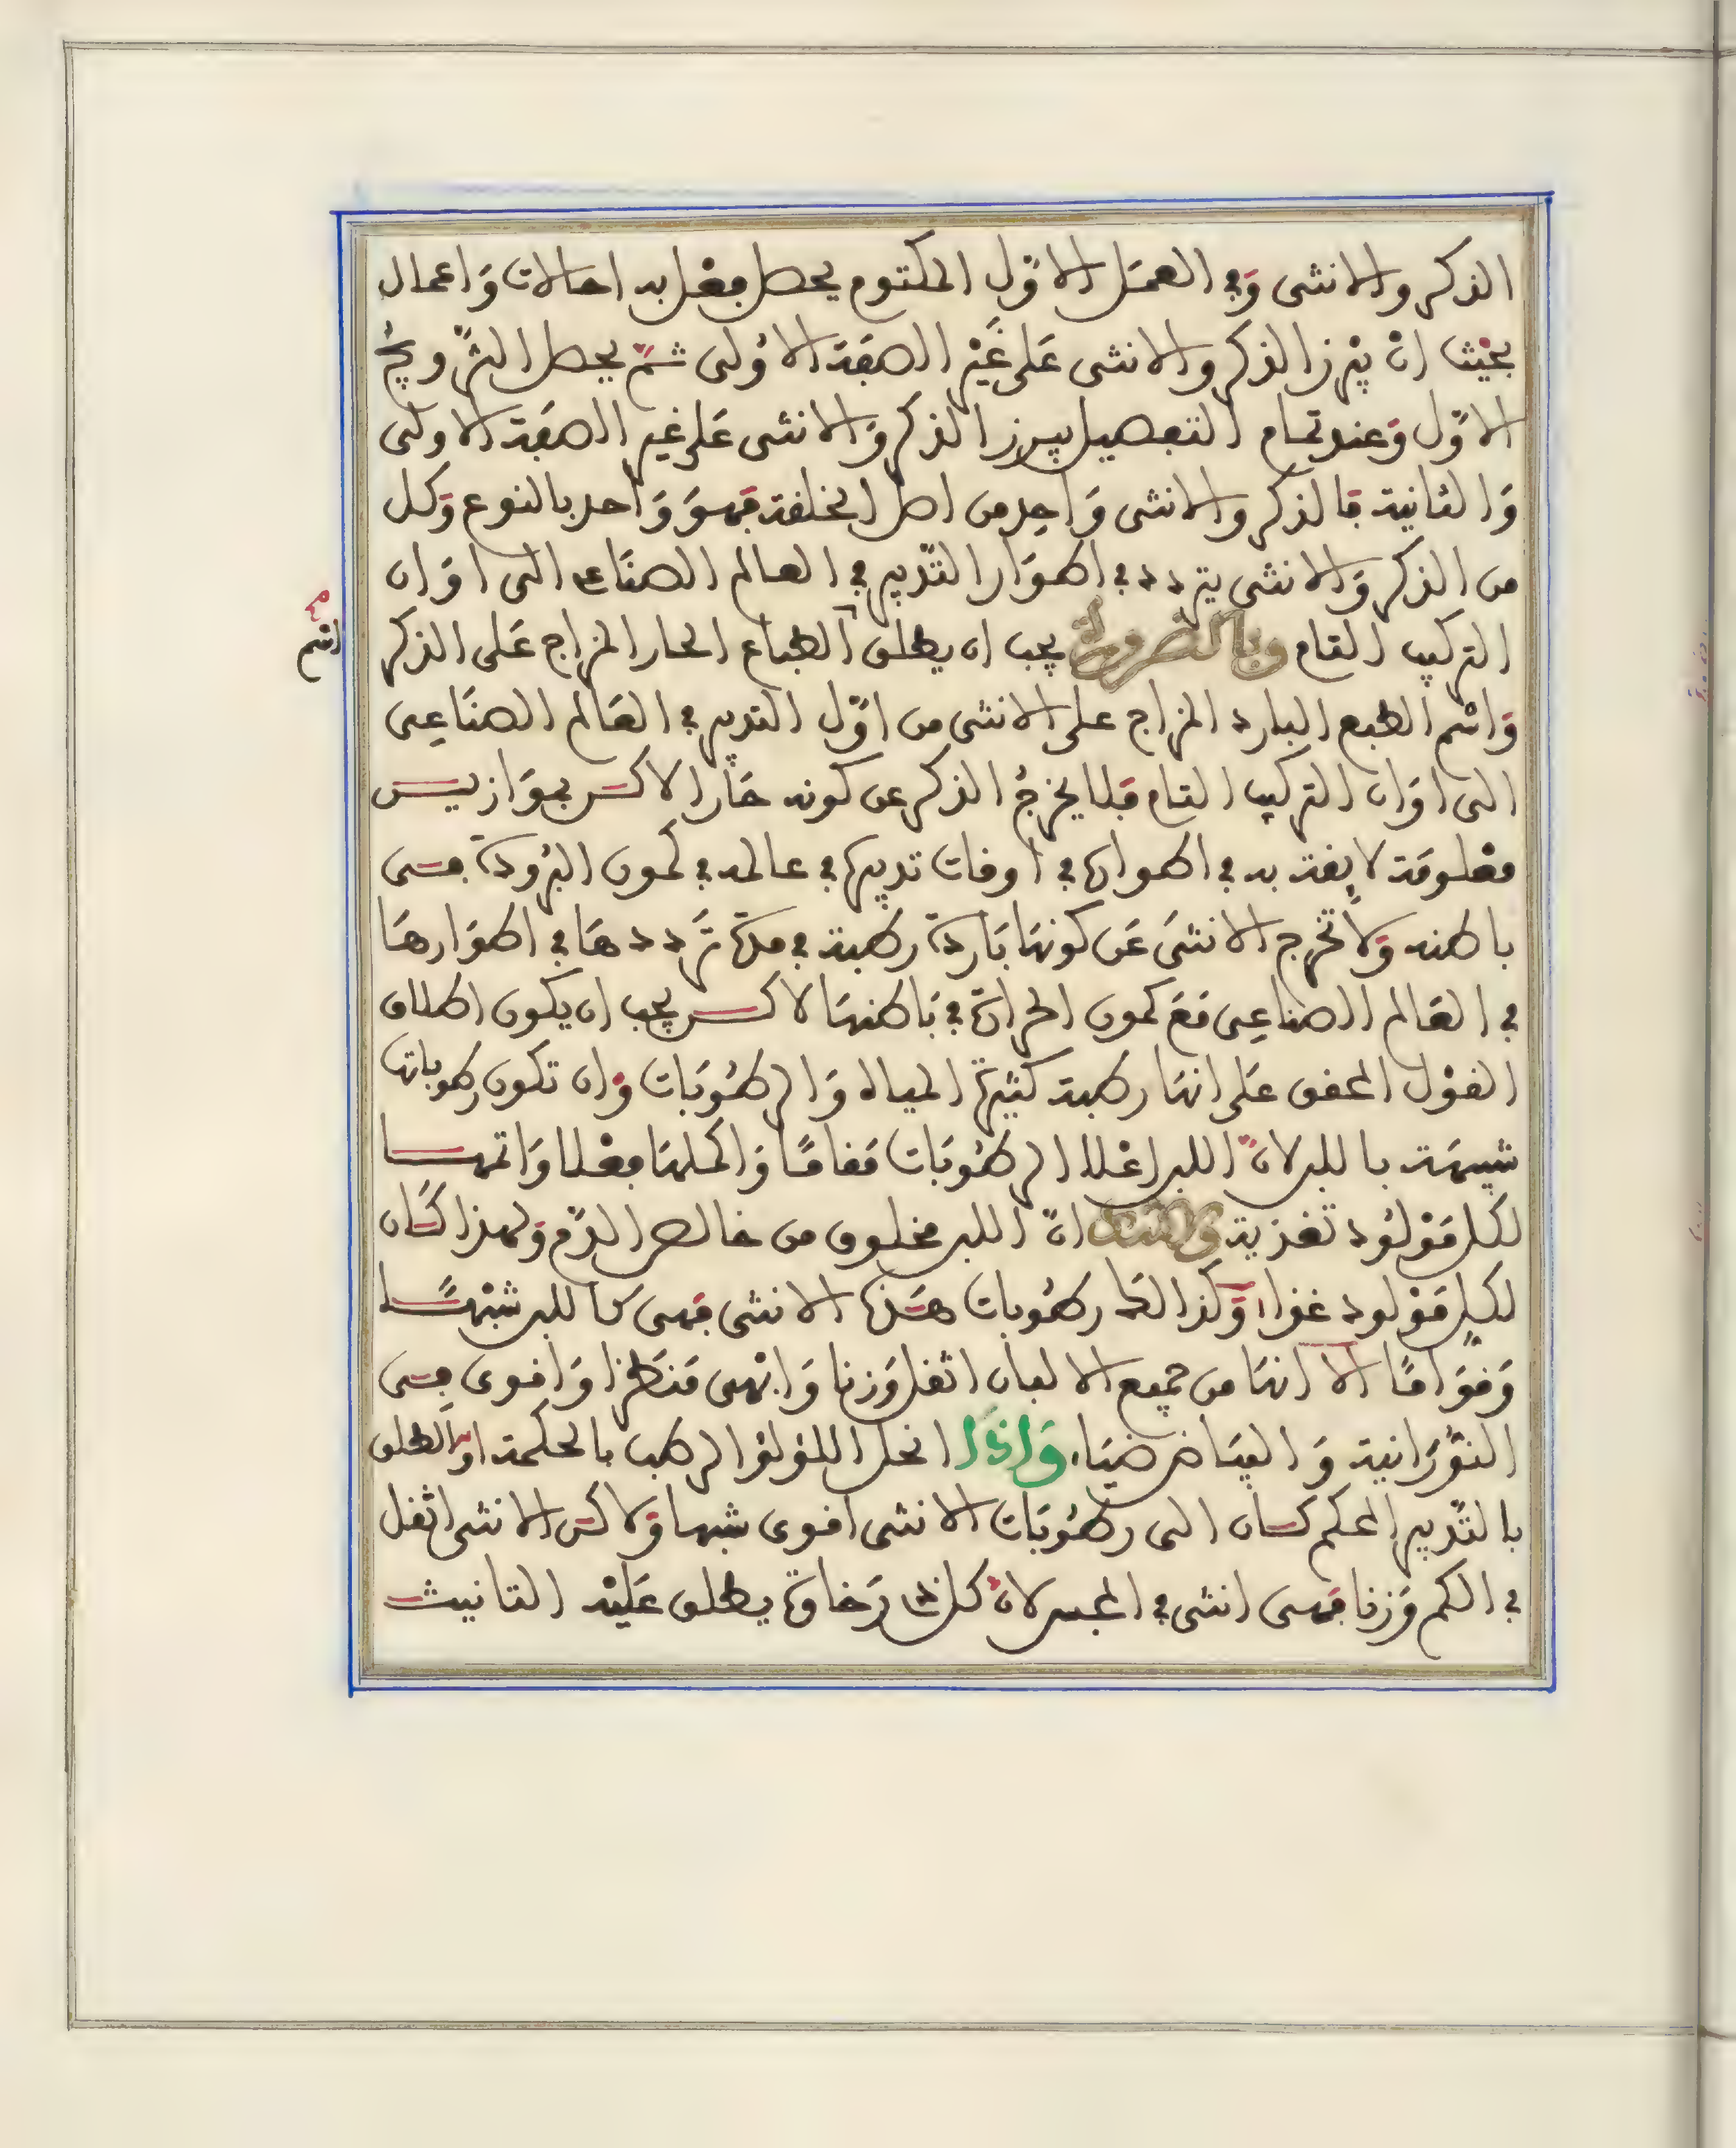 الذكر والانثى وَفي العمَل الاوّل المكتوم يحصل فعْل به احالات وَاعمال
بحيْث انْ يبْرز الذكر والانثى عَلى غَيْر الصفَة الاوُلى ثمّ يحصل
الاوّل وَعند تمام التفصيل يبرز الذكر وَالانثى عَلى غير الصفَة الاولى
وَالثانية فَالذكر والانثى وَاحِد من اصل الخلقة فهوَ وَاحد بالنوع وَكل
من الذكر وَالانثى يتردد في اطوَار التّدبير في العالم الصنَاعى الى اوَان
التركيب التام وبالضرورة يجب ان يطلق الطباع الحار المزاج عَلى الذكر
اسْم
وَاسْم الطبع البارد المزاج على الانثى من اوّل التدبير في العَالم الصنَاعِى
الى اوَان التركيب التام فَلا يخرجُ الذكر عن كونه حَارا لاكن بموَازين
معْلومَة لا يعتد به في اطوارها في اوقات تدبيرها في عالمه في كمون البرُودة فى
باطنه وَلا تخرج الانثىَ عَن كونهَا بَاردة رطبة في مدّة تَردّدهَا في اطوَارهَا
في العَالم الصناعِى مَعَ كمون الحرارة في بَاطنهَا لاكن يجب ان يكون اطلاق
القوْل المحقق عَلى انهَا رطبة كثيرة المياه وَالرطوُبَات وَان تكون رطوباتها
شبيهَة باللبن لانّ اللبن اعْلا الرطوُبَات مَقامًا وَاكملهَا فعْلا وَاتمهَا
لكل مَوْلوُد تغذية انّ اللبن مخلوق من خالص الدّم وَلهذا كَان
لكل مَوْلود غذاء وَكذالك رطوُبات هَذه الانثى فهى كاللبن شبْهًا
وَقوَامًا الا انهَا من جميع الالبان اثقل وَزنا وَابْهى مَنظرا وَاقوى فِى
النوُرَانية وَالبيَاض ضيَاء وَاذَا انحل اللؤلؤ الرطب بالحكمة اوالطلق
بالتّدبير المحكم كان الى رطوُبَات الانثى اقوى شبها وَلاكن الانثى اثقل
في الكم وَزنا فهى انثى في الجس لانّ كل ذى رَخاوة يطلق عَليْه التانيث